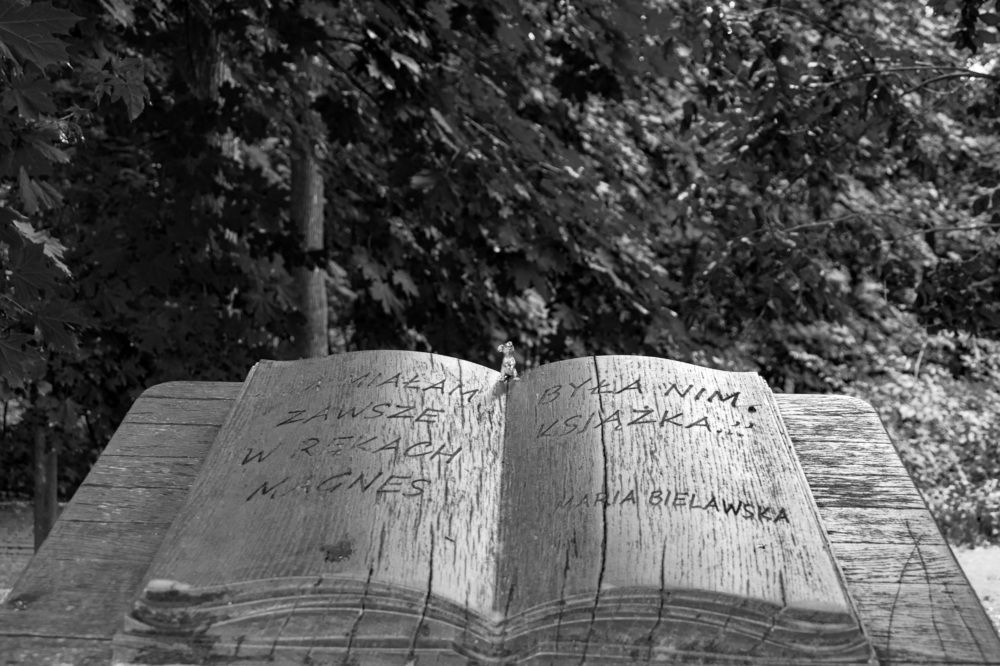 MIAŁAM
ZAWSZE
W RĘKACH
MAGNES
BYŁA NIM
KSIĄŻKA...!!
MARIA BIELAWSKA